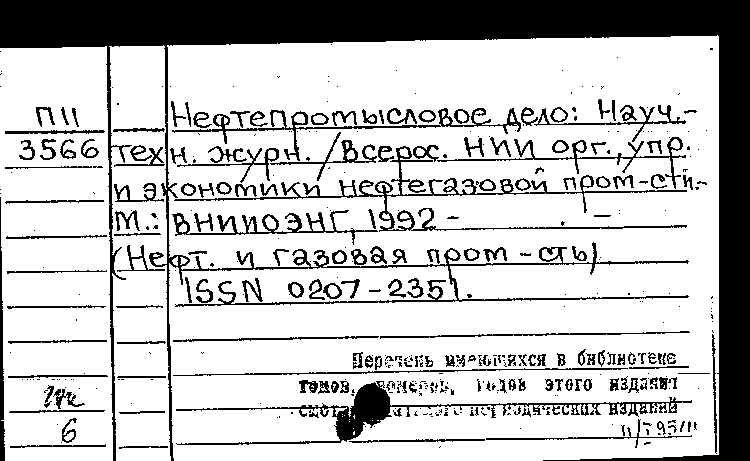 П11
3566
Нефтепромысловое дело: Науч.-
техн. журн. / Всерос. НИИ орг., упр.
и экономики нефтегазовой пром-сти.-
М.: ВНИИОЭНГ, 1992 - . -
(Нефт. и газовая пром-сть)
ISSN 0207-2351.
Перечень имеющихся в библиотеке
томов, номеров, годов этого издания
периодических изданий
6